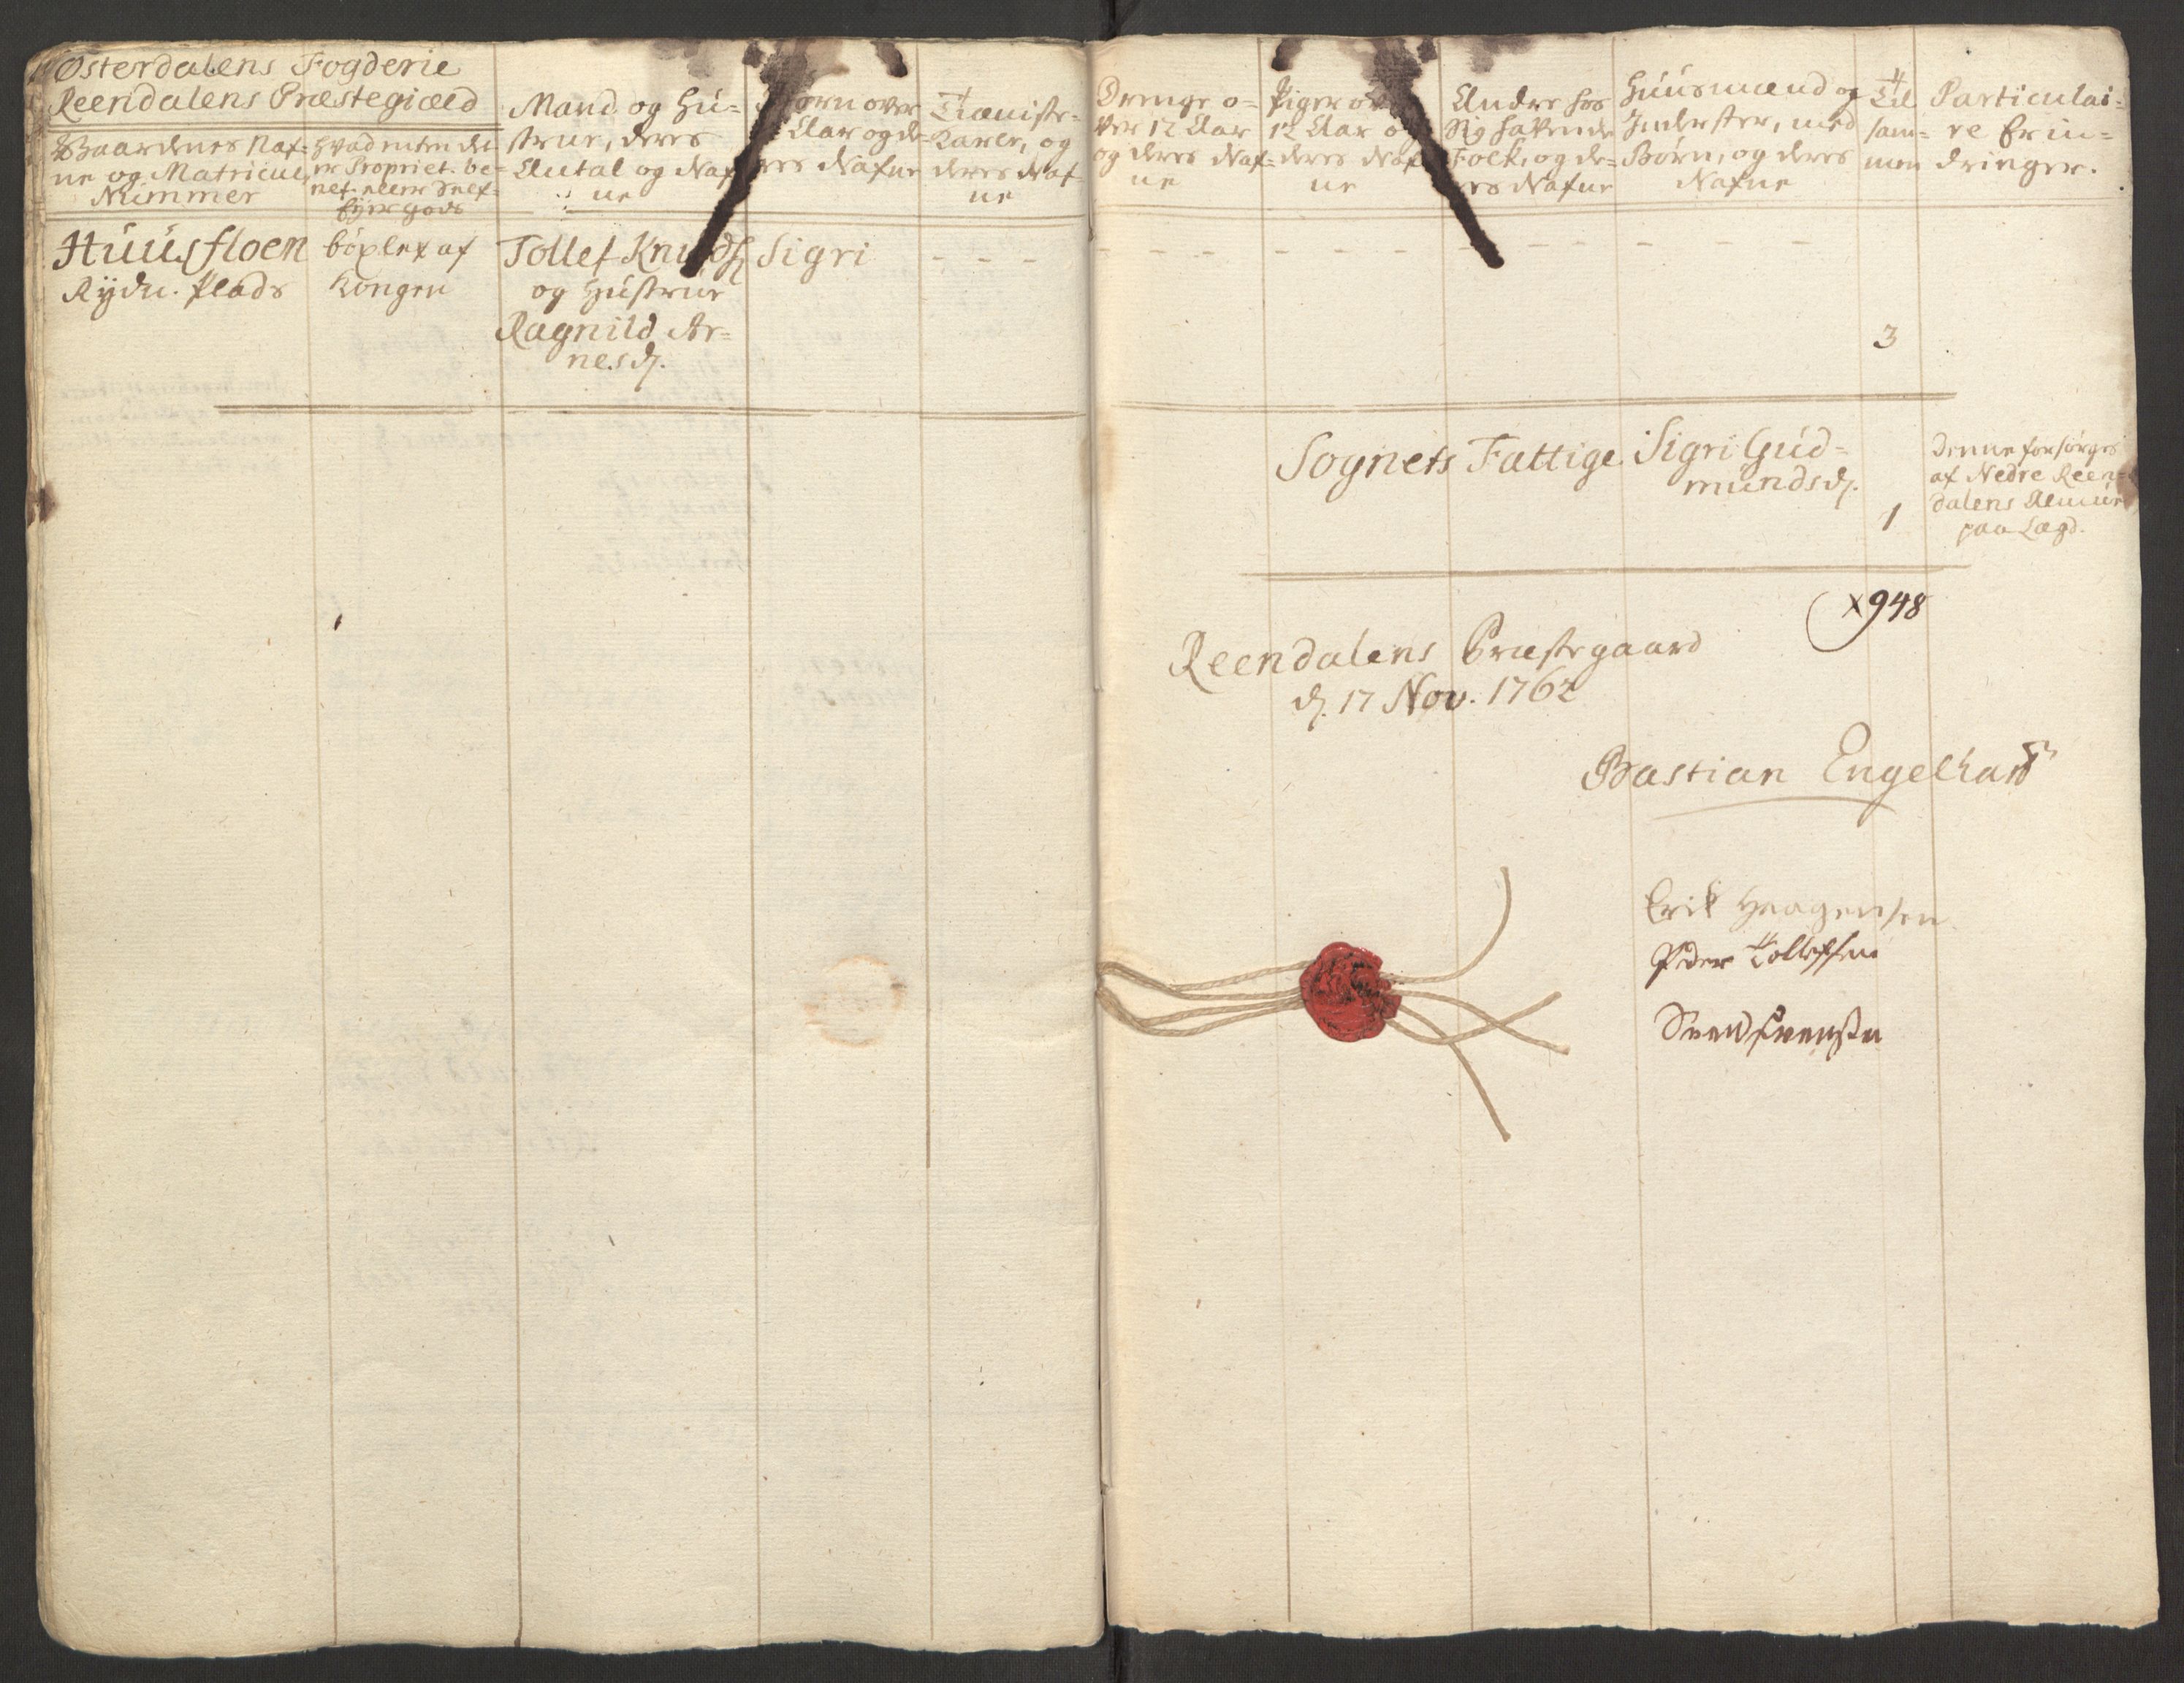 Østerdalens Fogderie
Reendalens Præstegield
Gaardenes Naf=
ne og Matricul
Nummer
Hvad enten det
er Propriet. be=
nef. eller Self=
Ejer gods
Mand og Hu=
strue, deres
Antal og Naf
ne
Børn over
Aar og de
res Nafne
Tieniste=
Karle, og
deres Naf=
ne
Drenge o=
ver 12 Aar
og deres Naf=
ne
Piger over
12 Aar og
deres Naf
ne
Andre hos
sig havende
Folk, og de=
res Nafne
Huusmænd og
Inderster, med
Børn, og deres
Nafne
Til
sam=
men
Particulai=
re Erin=
dringer.
Huusfloen
Rydn. Plads
böxlet af
Kongen
Tollef Knuds
og Hustrue
Ragnild Ar=
nesd.
Sigri
3
Sognets Fattige Sigri Gud=
mundsd.
1
Denne forsørges
af Nedre Reen=
dalens Almue
paa Lægd.
x948
Reendalens Præstegaard
d. 17 Nov. 1762
Bastian Engelhart
Erik Haagensen
Peder Tollefsen
Svend Svensen